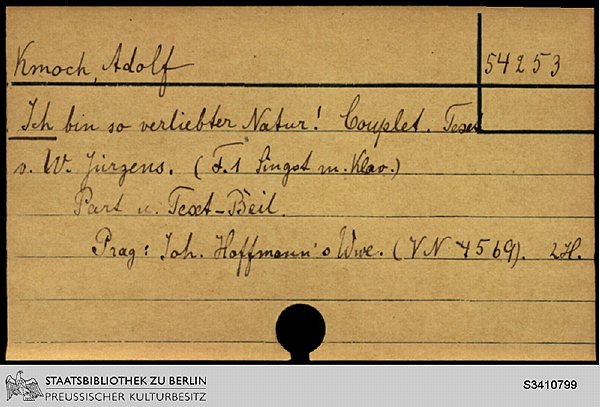 Kmoch, Adolf
54253
Ich bin so verliebter Natur! Couplet. Text
v. W. Jürgens. (F. 1 Singst m. Klav.)
Part u. Text-Beil.
Prag: Joh. Hoffmann's Wwe. (VN 4569). 2H.
STAATSBIBLIOTHEK ZU BERLIN
PREUSSISCHER KULTURBESITZ
S3410799